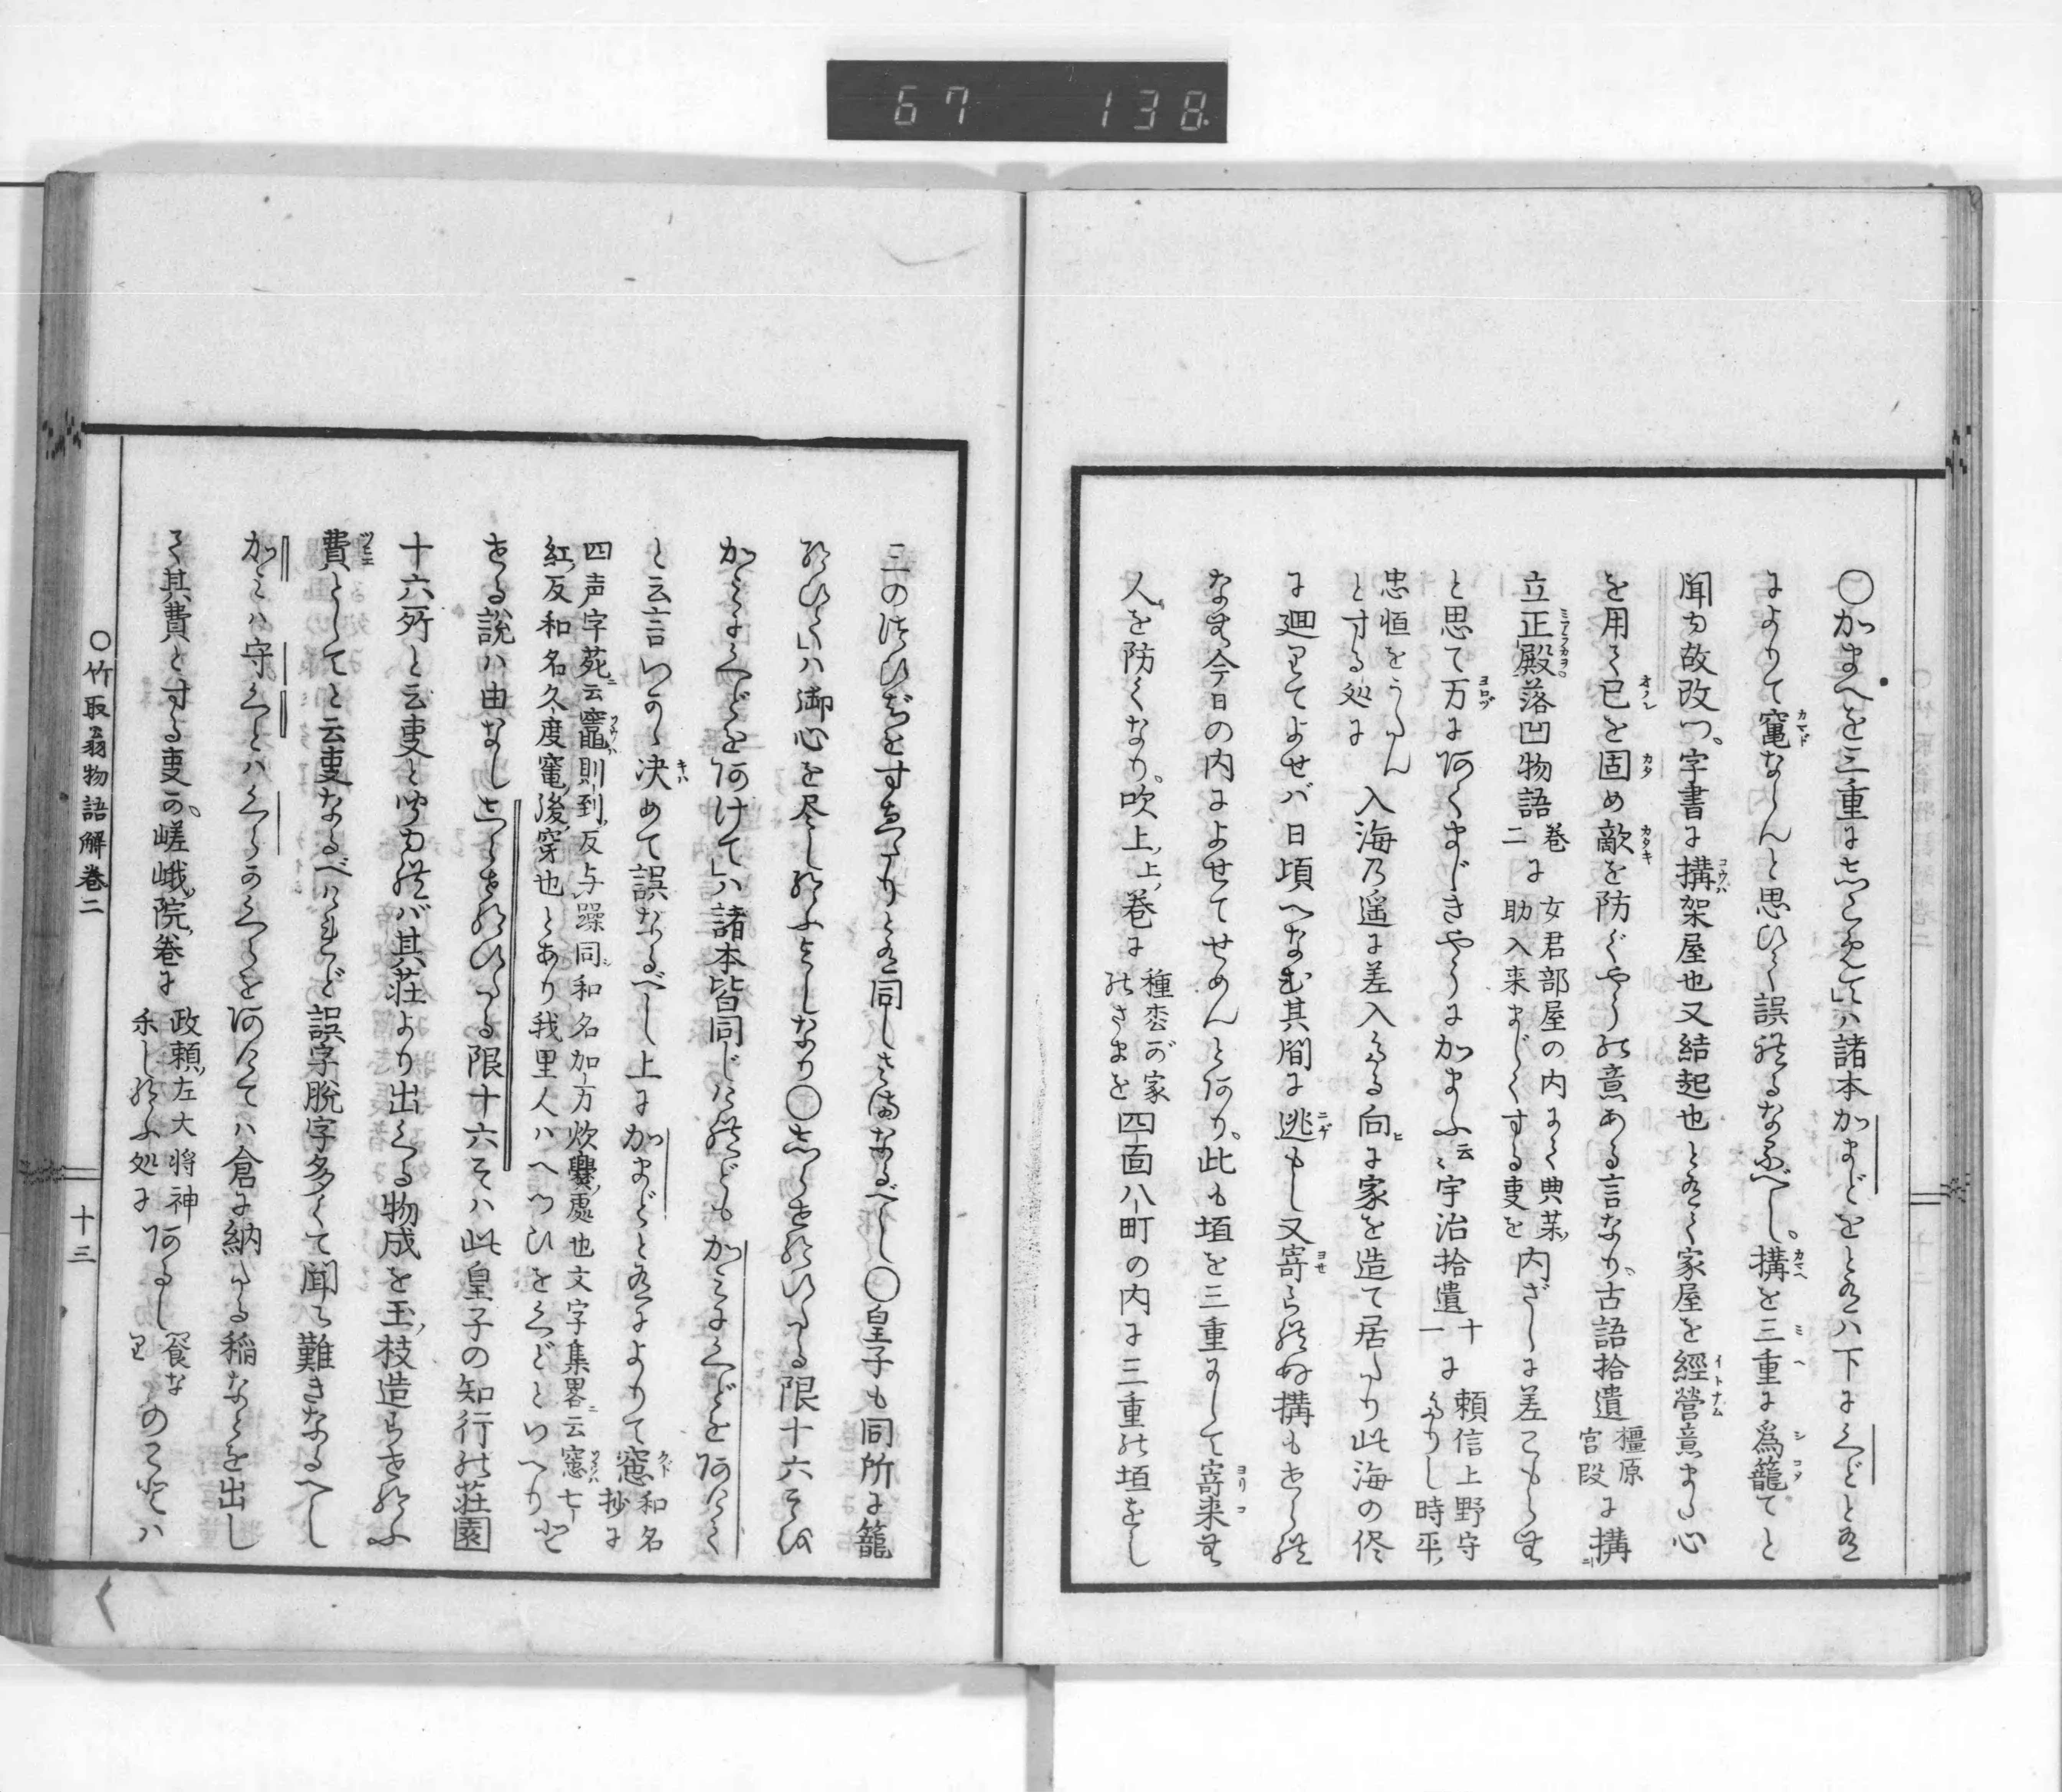 67 138
〇かまへを三重にしこめて 此ハ諸本かまどをと有ハ下にくどと有
によりて竃ならんと思ひて誤れるなるべし。構を三重に為籠てと
聞ゆ故改つ。字書に構架屋也又結起也と有て家屋を經營意また心
を用て已を固め敵を防ぐやうの意ある言なり。古語拾遺橿原宮段に構
立正殿落凹物語巻二に女君部屋の内にて典薬助入来まじくする事を内ざしに差こもらせ
と思て万にあくまじきやうにかまふ云々宇治拾遺十一に頼信上野守たりし時平
忠恒をうたんとする処に入海乃遥に差入たる向に家を造て居たり此海の侭
に廻りてよせバ日頃へなむ其間に逃もし又寄られぬ構もせられ
なむ今日の内によせてせめんとあり。此も垣を三重にして寄来む
人を防くなり。吹上上巻に種松が家のさまを四面八町の内に三重の垣をし
三のついひぢをすゑたりと有同しさまなるべし〇皇子も同所に籠
給ひて 此ハ御心を尽し給ふよしなり〇しらせ給ひたる限十六そを
かミにくどをあけて 此ハ諸本皆同じけれどもかミにくどをあけて
と云言いかゝ決めて誤なるべし上にかまどと有によりて窻和名抄に
四声字苑云竈則到反与躁同和名加万炊爨處也文字集畧云窻七
紅反和名久度竃後穿也とあり我里人ハへつひをくどといへりと
せる説ハ由なししらせ給ひたる限十六そハ此皇子の知行の荘園
十六所と云事と聞ゆれバ其荘より出くる物成を玉枝造らせ給ふ
費としてと云事なるべけれど誤字脱字多くて聞え難きなるへし
かミハ守くとハくらのくらをあけてハ倉に納たる稲などを出し
て其費とする事か。嵯峨院巻に政頼左大将神禾し給ふ処にあるし饗なりのことハ
〇竹取翁物語解巻二
十三